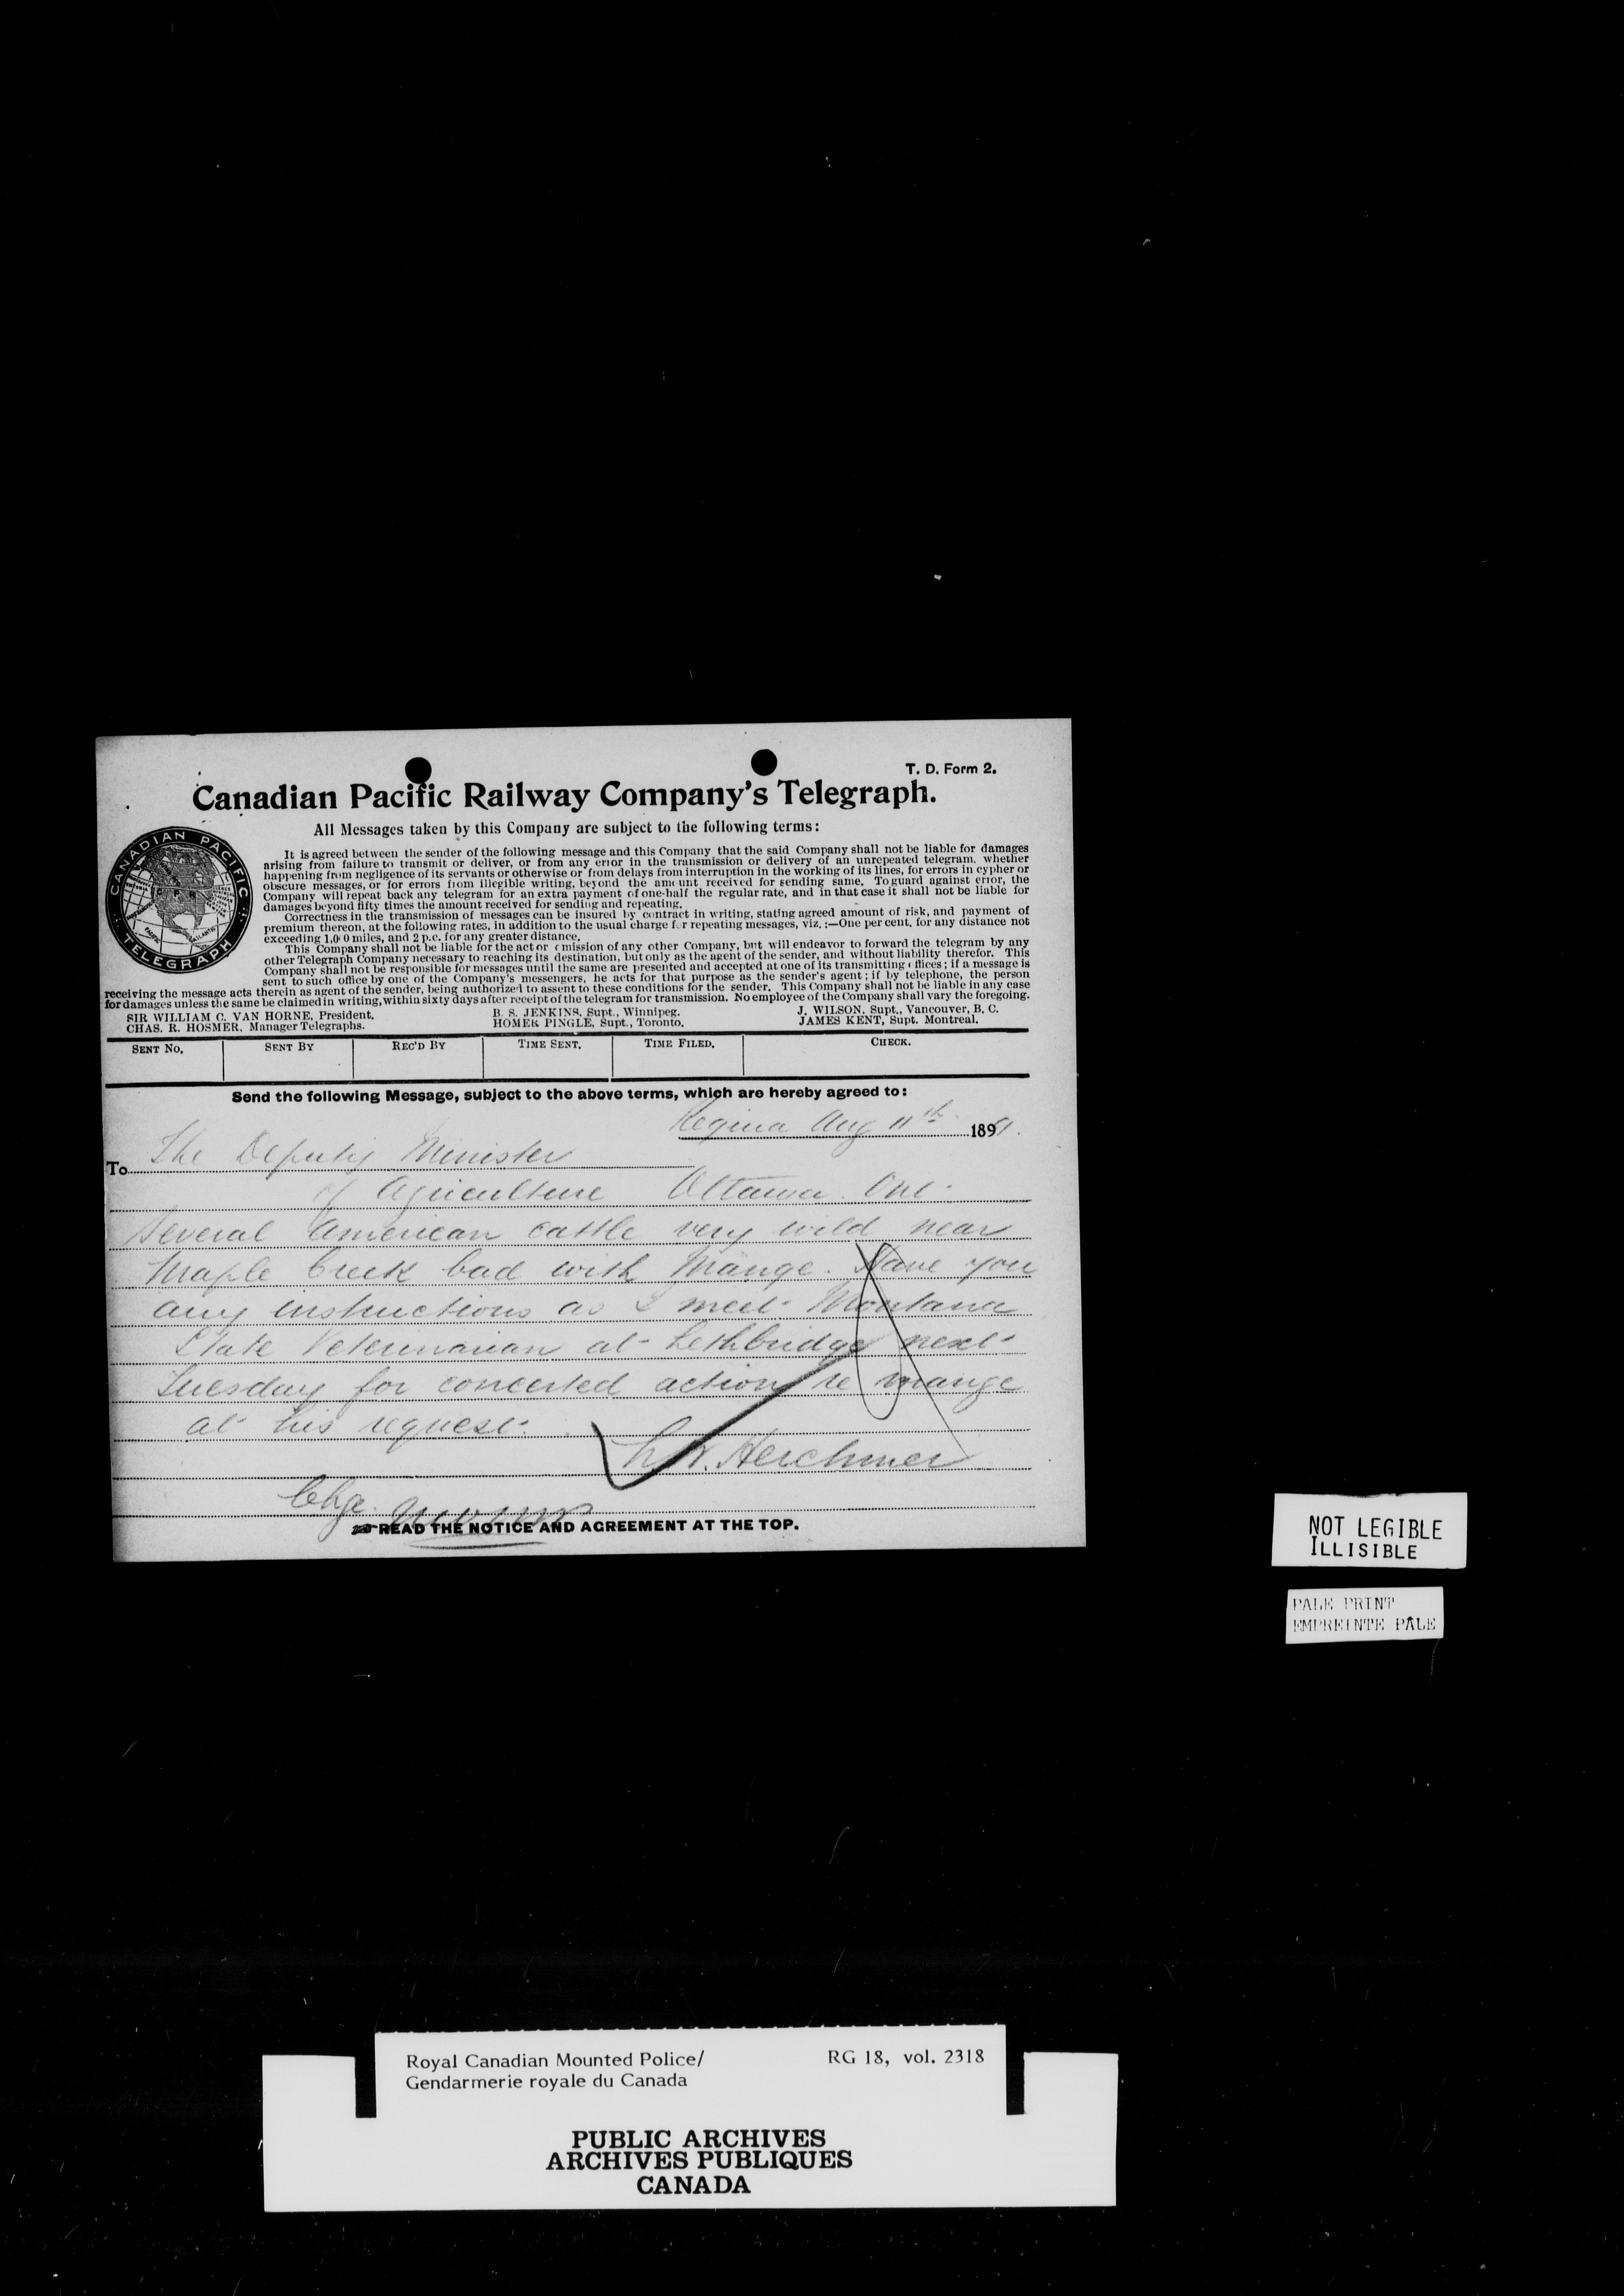 T. D. Form 2.
Canadian Pacific Railway Company's Telegraph.
All Messages taken by this Company are subject to the following terms:
CANADIAN PACIFIC
TELEGRAPH
It is agreed between the sender of the following message and this Company that the said Company shall not be liable for damages
arising from failure to transmit or deliver, or from any error in the transmission or delivery of an unrepeated telegram, whether
happening from negligence of its servants or otherwise or from delays from interruption in the working of its lines, for errors in cypher or
obscure messages, or for errors from illegible writing, beyond the amount received for sending same. To guard against error, the
Company will repeat back any telegram for an extra payment of one-half the regular rate, and in that case it shall not be liable for
damages beyond fifty times the amount received for sending and repeating.
Correctness in the transmission of messages can be insured by contract in writing, stating agreed amount of risk, and payment of
premium thereon, at the following rates, in addition to the usual charge for repeating messages, viz.:—One per cent. for any distance not
exceeding 1,000 miles, and 2 p.c. for any greater distance.
This Company shall not be liable for the act or omission of any other Company, but will endeavor to forward the telegram by any
other Telegraph Company necessary to reaching its destination, but only as the agent of the sender, and without liability therefor. This
Company shall not be responsible for messages until the same are presented and accepted at one of its transmitting offices; if a message is
sent to such office by one of the Company's messengers, he acts for that purpose as the sender's agent; if by telephone, the person
receiving the message acts therein as agent of the sender, being authorized to assent to these conditions for the sender. This Company shall not be liable in any case
for damages unless the same be claimed in writing, within sixty days after receipt of the telegram for transmission. No employee of the Company shall vary the foregoing.
SIR WILLIAM C. VAN HORNE, President. B. S. JENKINS, Supt., Winnipeg. J. WILSON, Supt., Vancouver, B. C.
CHAS. R. HOSMER, Manager Telegraphs. HOMER PINGLE, Supt., Toronto. JAMES KENT, Supt. Montreal.
SENT NO. SENT BY REC'D BY TIME SENT. TIME FILED. CHECK.
Send the following Message, subject to the above terms, which are hereby agreed to:
Regina Aug 11th 189
To The Deputy Minister
of Agriculture Ottawa Ont.
Several American cattle very wild near
Maple Creek bad with Mange. Have you
any instructions as I meet Montana
State Veterinarian at Lethbridge next
Tuesday for concerted action re mange
at his request.
L. W. Herchmer
Chge
READ THE NOTICE AND AGREEMENT AT THE TOP.
NOT LEGIBLE
ILLISIBLE
PALE PRINT
EMPREINTE PÂLE
Royal Canadian Mounted Police/ RG 18, vol. 2318
Gendarmerie royale du Canada
PUBLIC ARCHIVES
ARCHIVES PUBLIQUES
CANADA